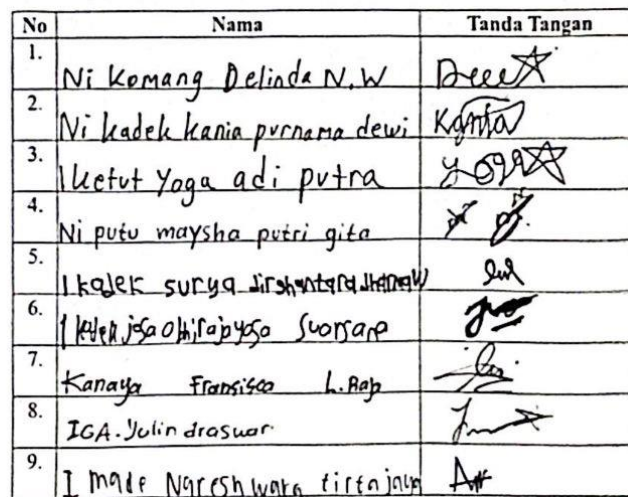 No Nama Tanda Tangan
1. Ni Komang Delinda N.W Deee
2. Ni kadek kania purnama dewi Kania
3. I ketut Yoga adi putra yoga
4. Ni putu maysha putri gita
5. I kadek surya
6. I kadek
7. Kanaya Fransisca L. Rap
8. IGA. Yulindraswar
9. I made Nareshwara tirta jaya